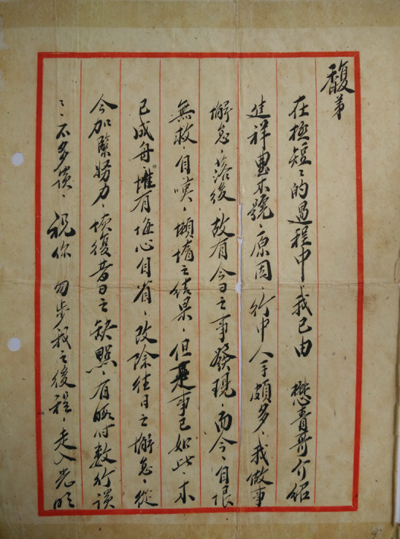 馥弟
在极短々的過程中,我已由 懋青哥介紹
進祥豊木號,原因,行中人手頗多,我做事
懈怠,落後,故有今日之事發現,而今,自恨
無救自嘆,懶惰之結果,但是事已如此,木
已成舟,惟有悔心自省,改除往日之懈怠,從
今加緊努力,填復昔日之缺點,有暇付數行談
々,不多談,祝你 勿步我之後程,走入光明